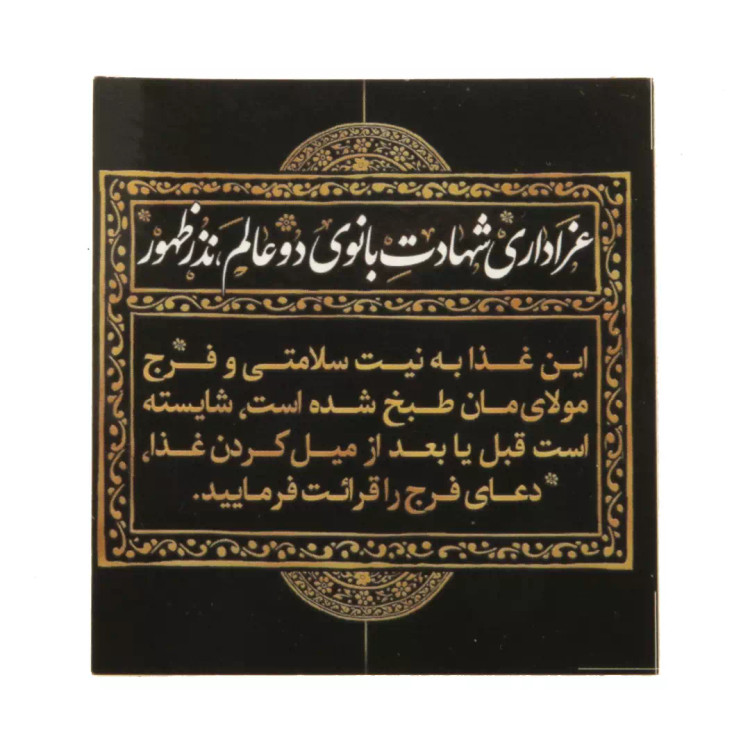 عزاداری شهادتِ بانوی دو عالم، نذر ظهور
این غذا به نیت سلامتی و فرج
مولای‌مان طبخ شده است، شایسته
است قبل یا بعد از میل کردن غذا،
دعای فرج را قرائت فرمایید.